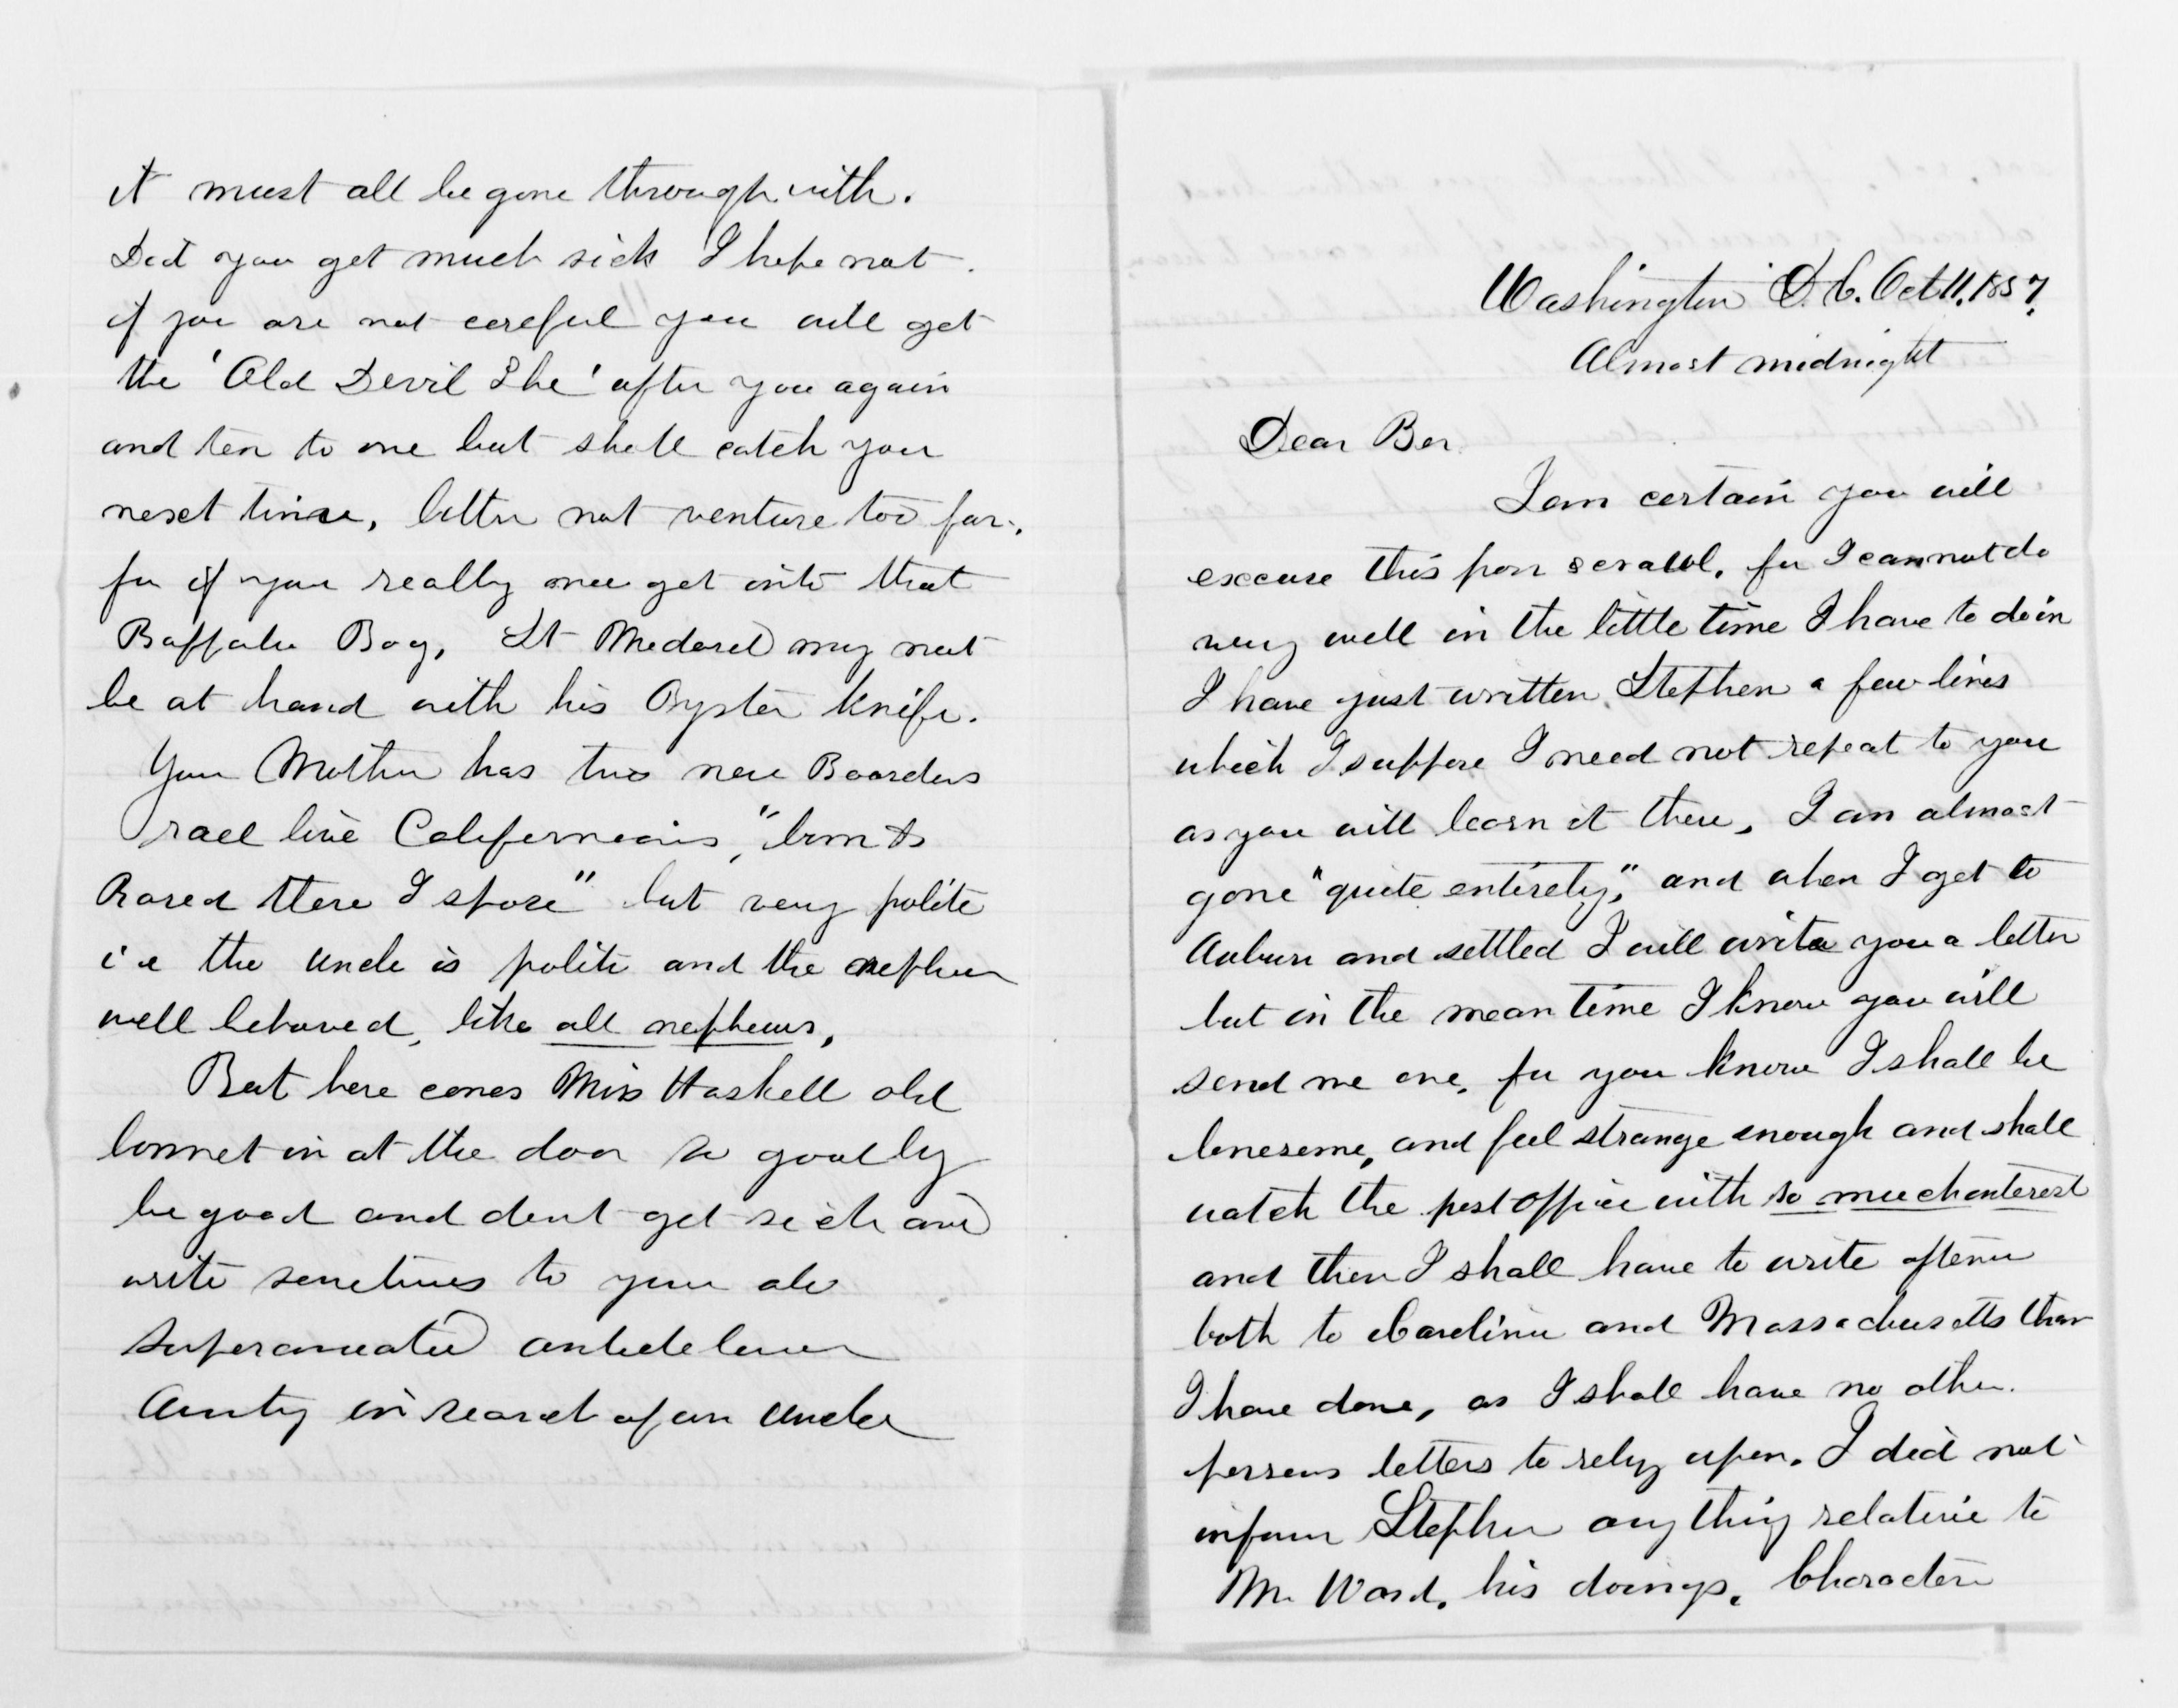 it must all be gone through with.
Did you get much sick I hope not.
if you are not careful you will get
the 'Old Devil She' after you again
and ten to one but shall catch you
next time, better not venture too far.
for if you really once get into that
Buffalo Bog, St Medard may not
be at hand with his Oyster knife.
Your Mother has two new Boarders
rael live Californeans, "born &
Rased there I spose" but very polite
i e the uncle is polite and the nephew
well behaved, like all nephews,
But here comes Miss Haskell old
bonnet in at the door so good by
be good and dont get sick and
write sometimes to your old
superanuated antedeluvian
Aunty in search of an Uncle
Washington D.C. Oct 11, 1857,
Almost midnight
Dear Ber
I am certain you will
excuse this poor scrawl, for I can not do
very well in the little time I have to do in
I have just written Stephen a few lines
which I suppose I need not repeat to you
as you will learn it there, I am almost
gone "quite entirely," and when I get to
Auburn and settled I will write you a letter
but in the mean time I know you will
send me one, for you know I shall be
lonesome, and feel strange enough and shall
watch the post office with so much interest
and then I shall have to write oftener
both to Carolina and Massachusetts than
I have done, as I shall have no other
persons letters to rely upon. I did not
inform Stephen any thing relative to
Mr Ward, his doings, Character